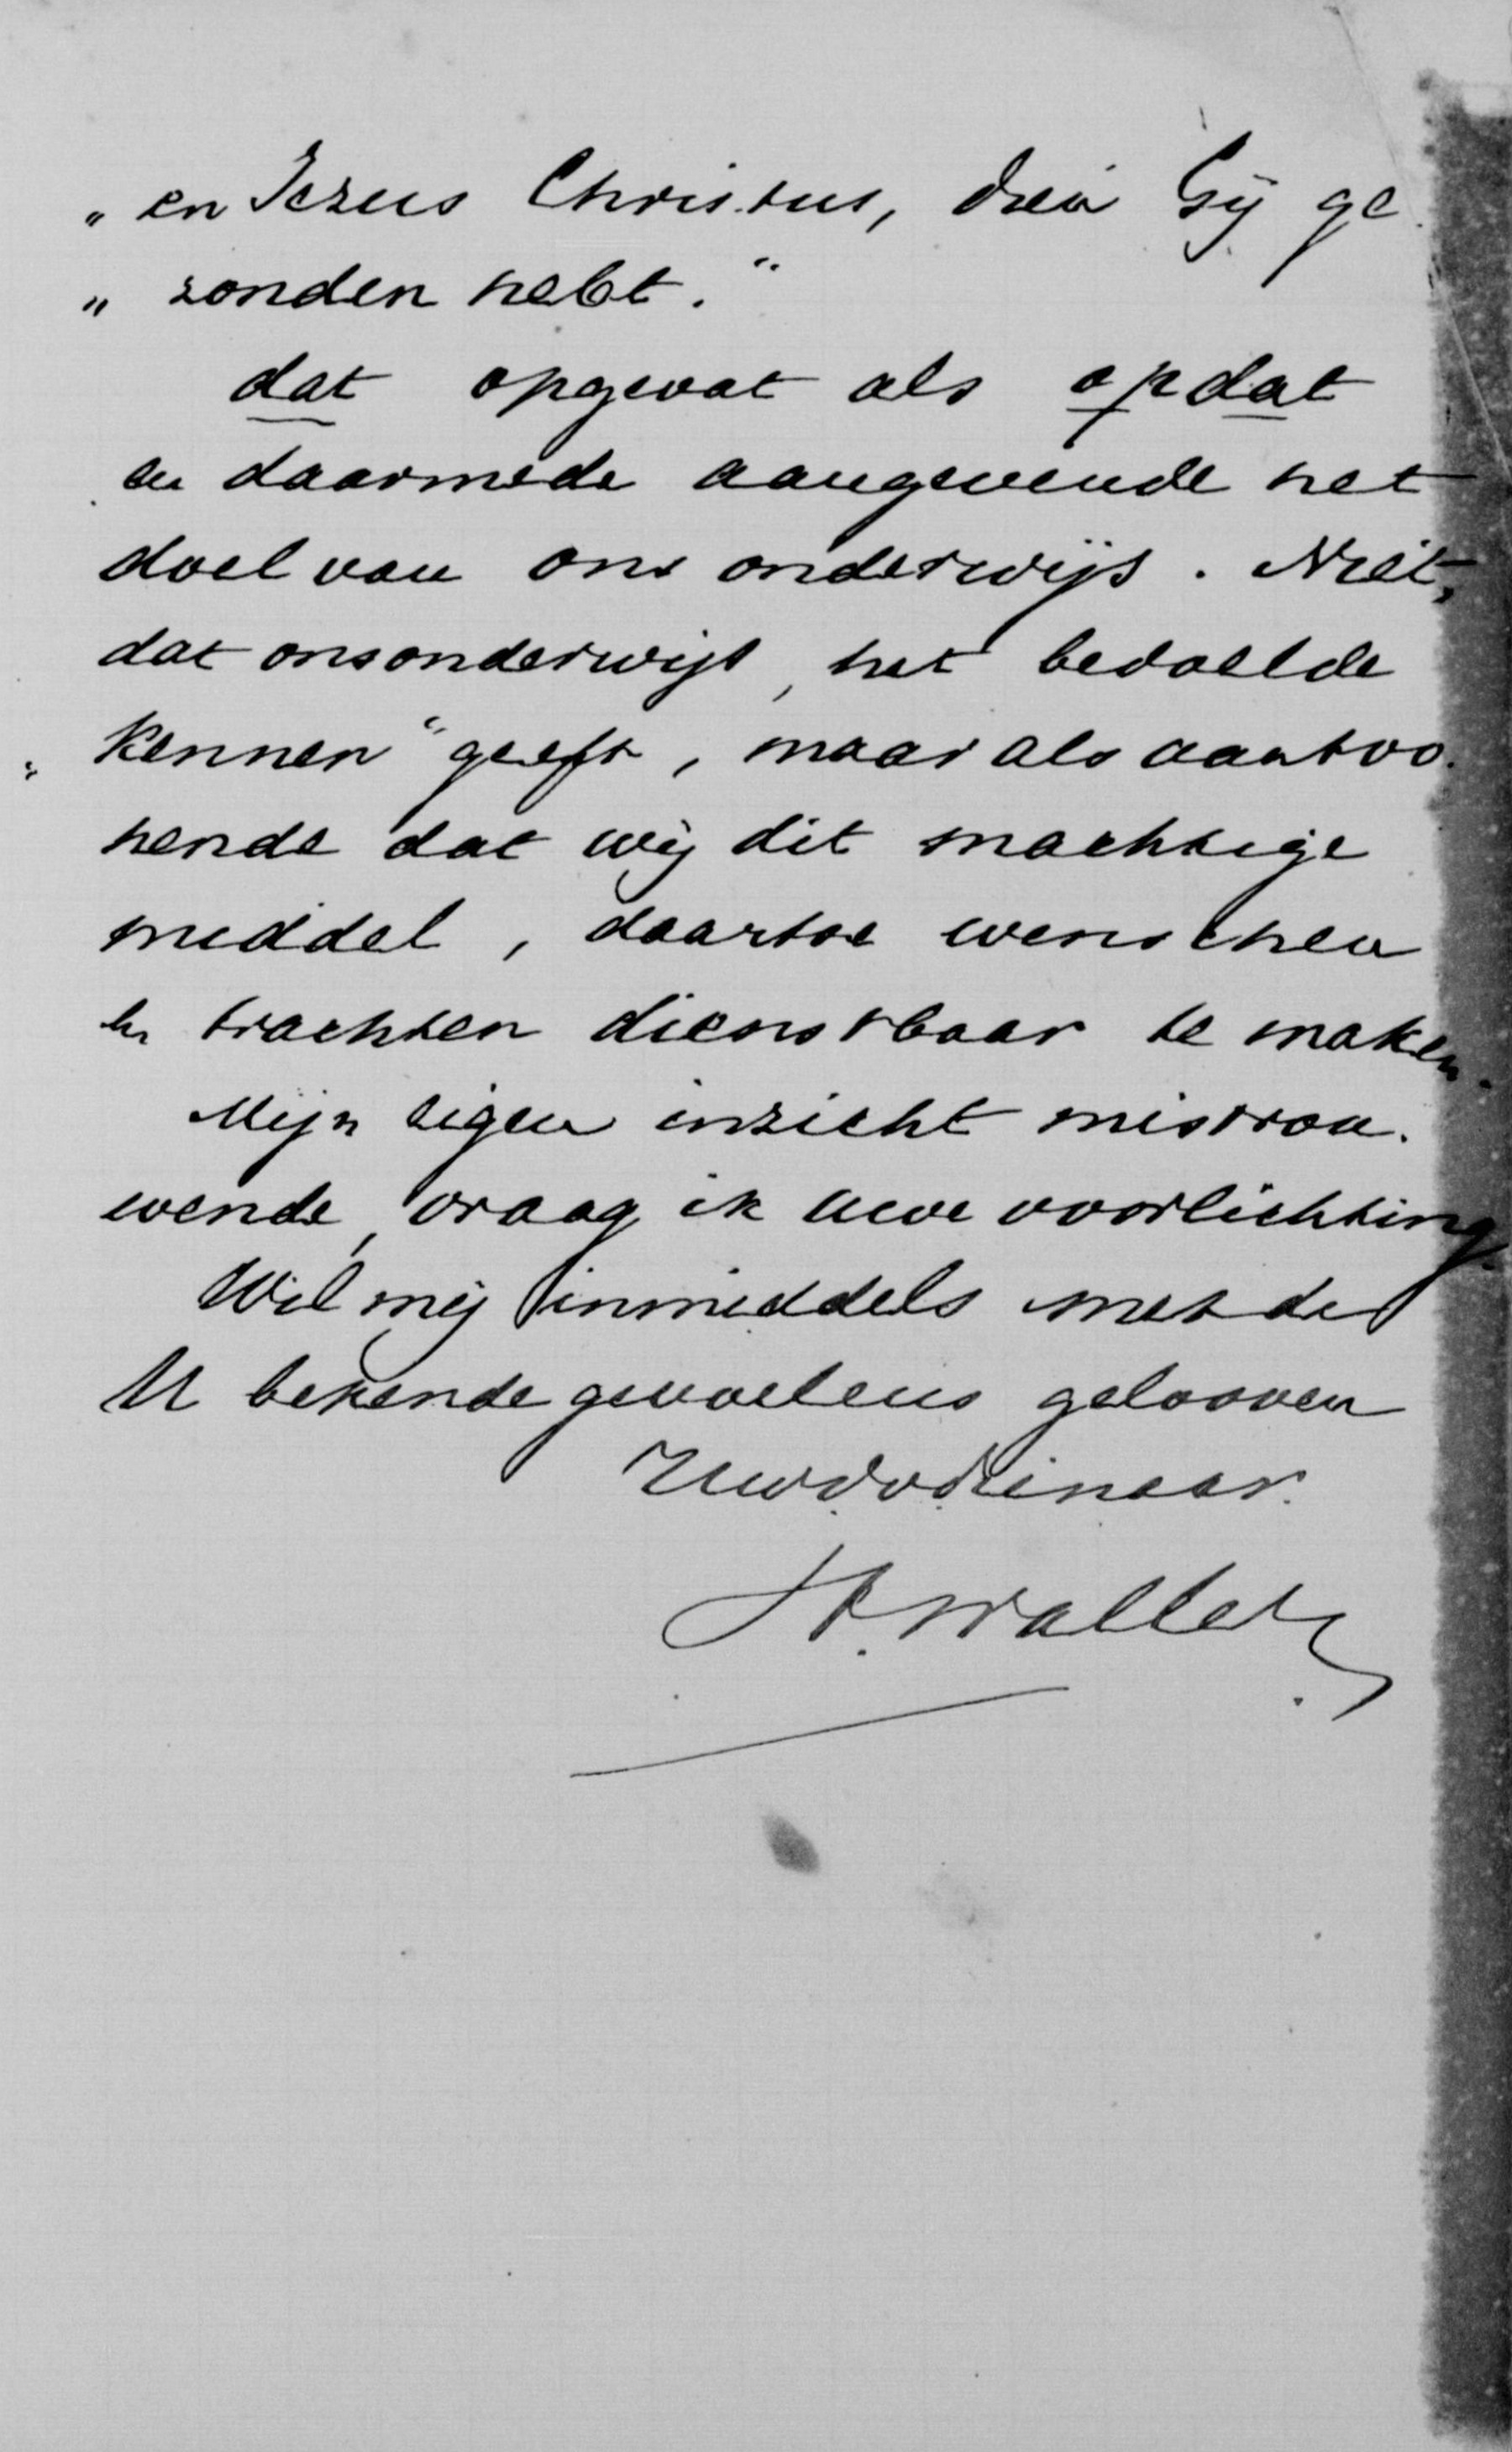 „ en Jezus Christus, dien Gij ge-
„ zonden hebt."
dat opgevat als opdat
en daarmede aangevende het
doel van ons onderwijs. Niet,
dat ons onderwijs, het bedoelde
„ Kennen" geeft, maar als aantoo-
nende dat wij dit machtige
middel, daartoe wenschen
en trachten dienstbaar te maken.
Mijn eigen inzicht mistrou-
wende, vraag ik uwe voorlichting.
Wil mij inmiddels met de
U bekende gevoelens gelooven
Uwdvdienaar.
H. Waller